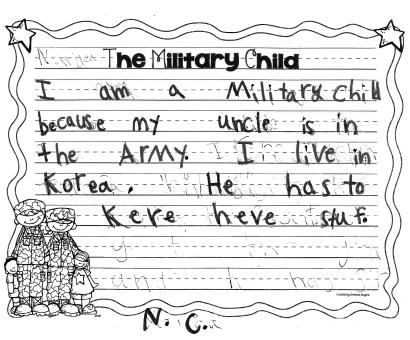 The Military Child
I am a Military Child
because my uncle is in
the Army. I live in
Korea. He has to
Kere heve stuf.
N. C.